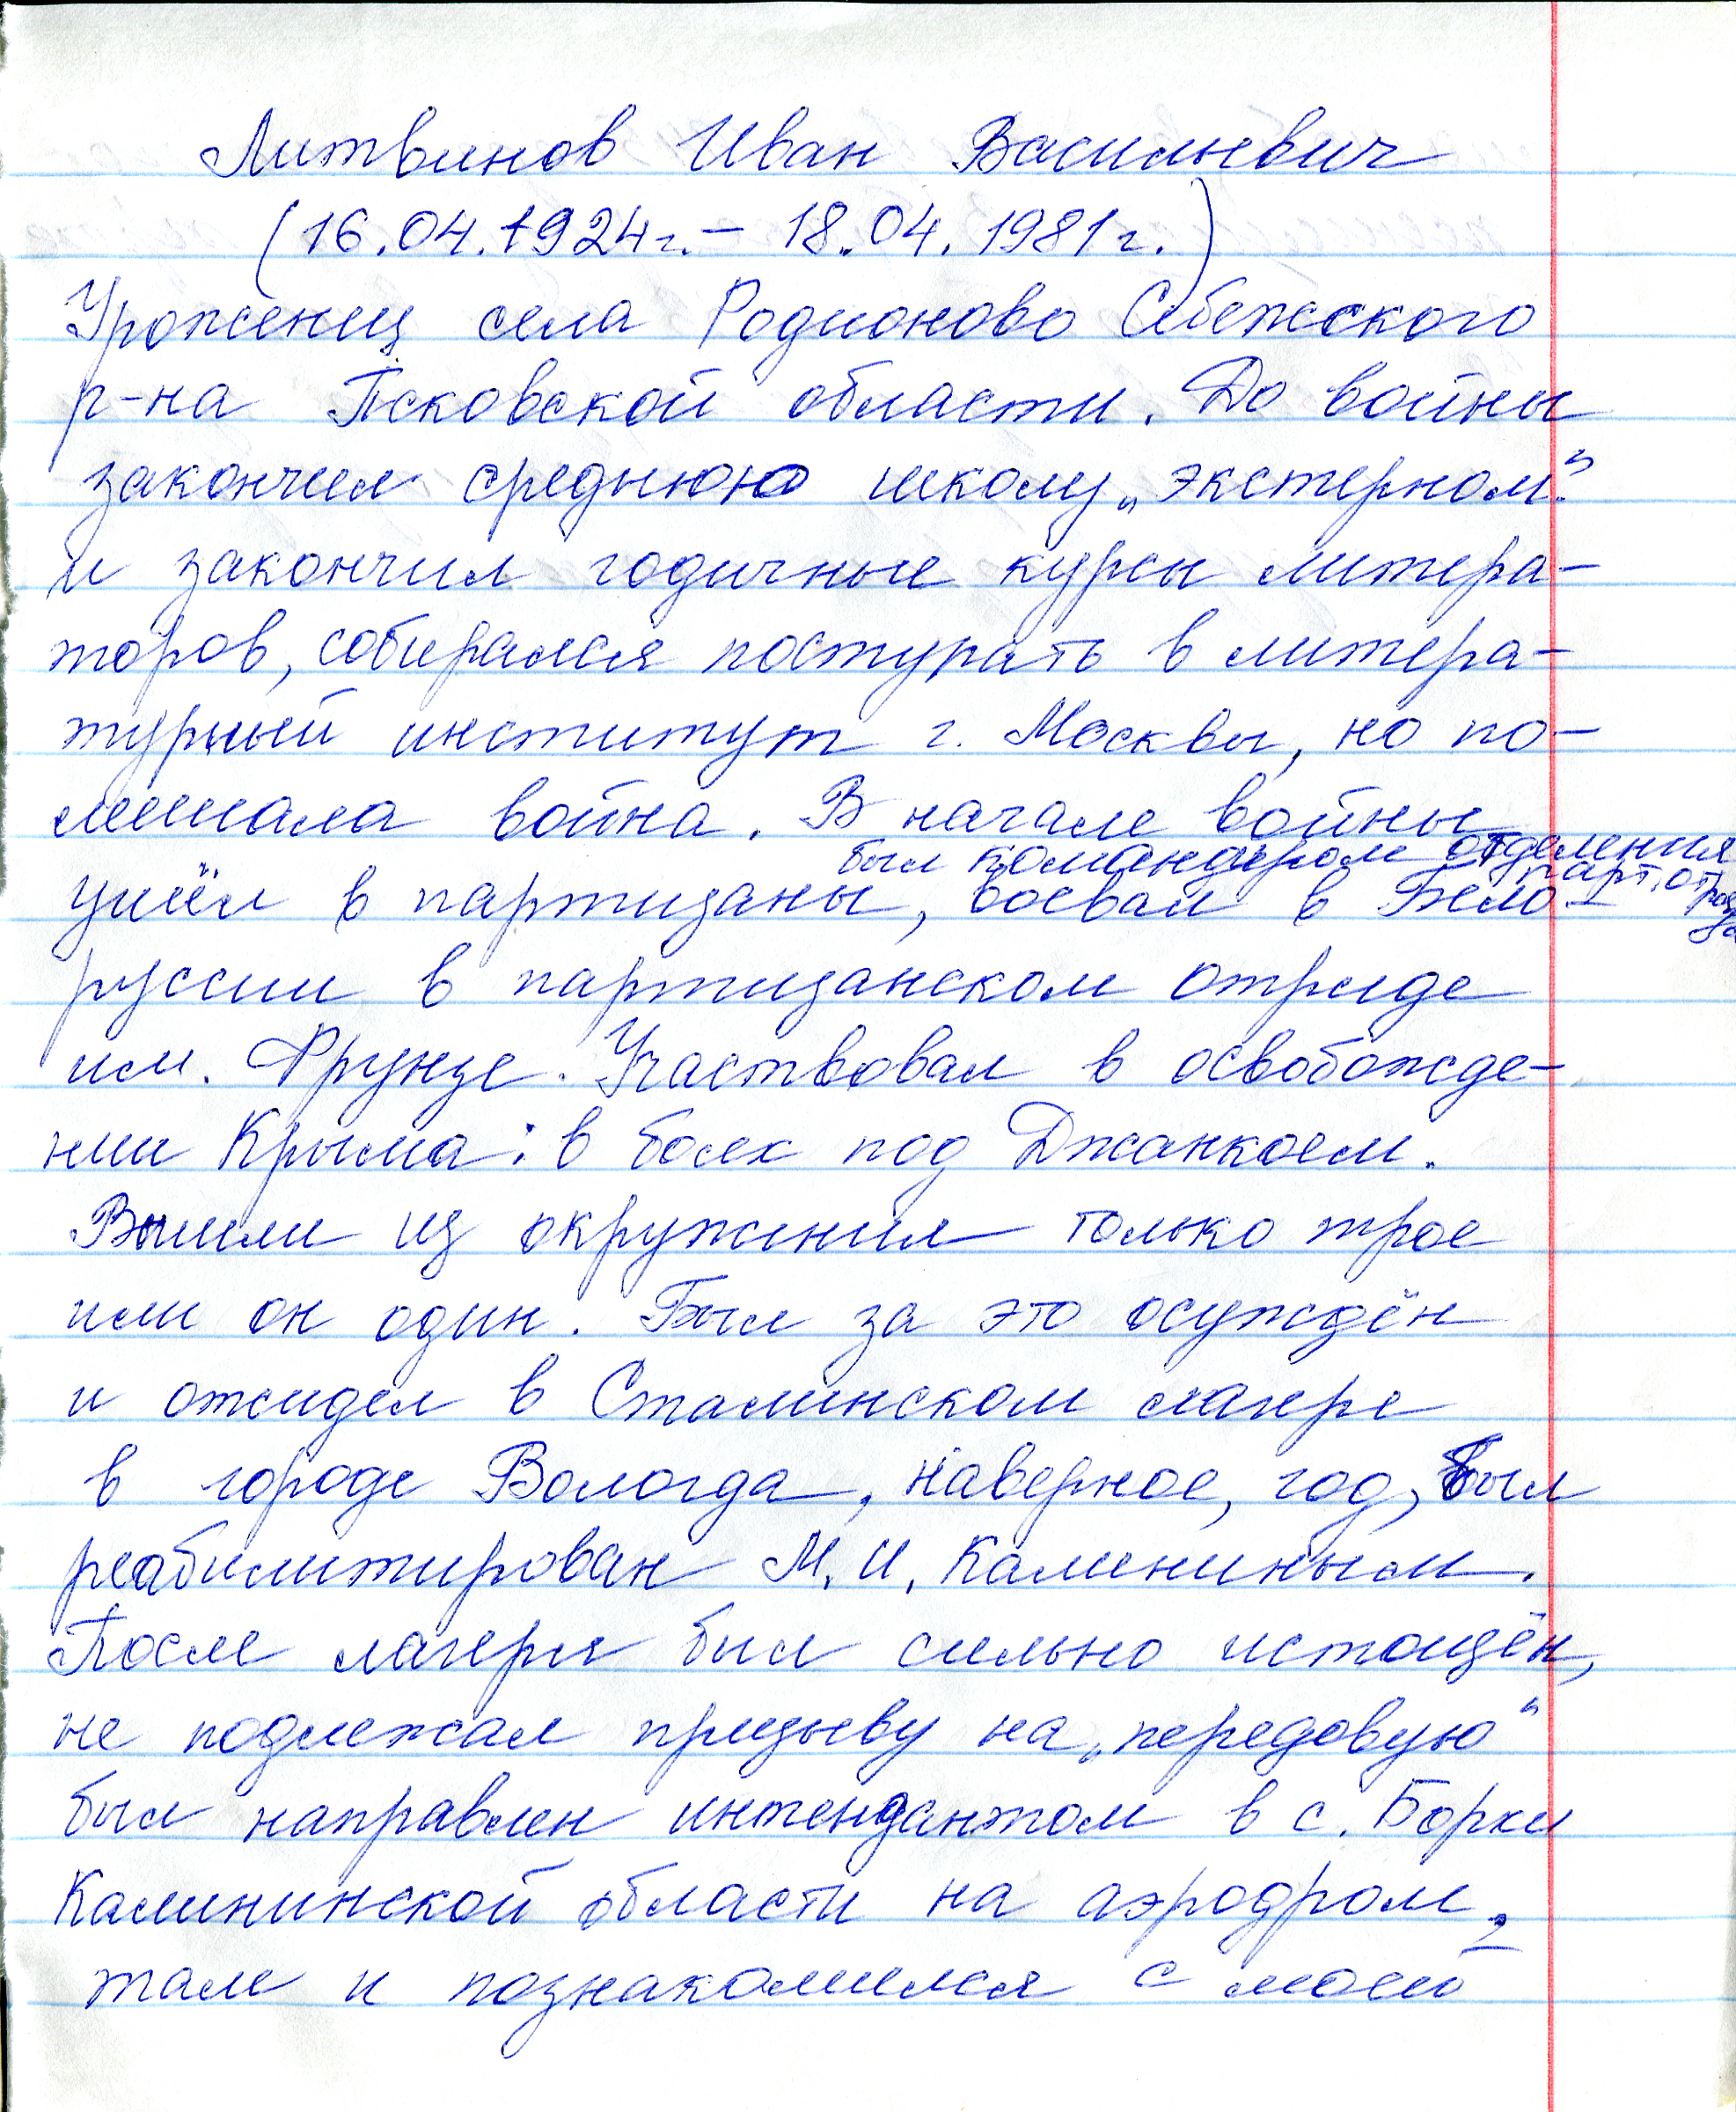 Литвинов Иван Васильевич
(16.04.1924г. – 18.04.1981г.)
Уроженец села Родионово Себежского
р-на Псковской области. До войны
закончил среднюю школу „экстерном"
и закончил годичные курсы литера-
торов, собирался постурать в литера-
турный институт г. Москвы, но по-
мешала война. В начале войны
был командиром отделения парт. отряда
ушёл в партизаны, воевал в Бело-
руссии в партизанском отряде
им. Фрунзе. Участвовал в освобожде-
нии Крыма: в боях под Джанкоем.
Вышли из окружения только трое
или он один. Был за это осуждён
и отсидел в Сталинском лагере
в городе Вологда, наверное, год, был
реабилитирован М. И. Калининым.
После лагеря был сильно истощён,
не подлежал призыву на „передовую"
был направлен интендантом в с. Борки
Калининской области на аэродром,
там и познакомился с моей